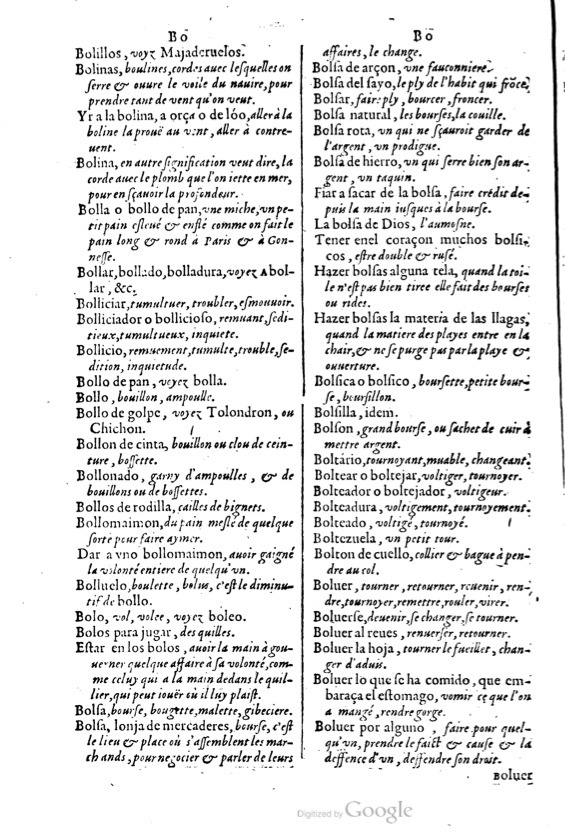 Bo
Bolillos, voyez Majaderuelos.
Bolinas, boulines, cordes auec lesquelles on
serre & ouure le voile du nauire, pour
prendre tant de vent qu'on veut.
Yr a la bolina, a orça o de lóo, aller à la
boline la prouë au vent, aller à contre-
uent.
Bolina, en autre signification veut dire, la
corde auec le plomb que l'on iette en mer,
pour en sçauoir la profondeur.
Bolla o bollo de pan, vne miche, vn pe-
tit pain esleué & enflé comme on fait le
pain long & rond à Paris & à Gon-
nesse.
Bollar, bollado, bolladura, voyez Abol-
lar, &c.
Bolliciar, tumultuer, troubler, esmouuoir.
Bolliciador o bollicioso, remuant, sedi-
tieux, tumultueux, inquiete.
Bollicio, remuement, tumulte, trouble, se-
dition, inquietude.
Bollo de pan, voyez bolla.
Bollo, bouillon, ampoulle.
Bollo de golpe, voyez Tolondron, ou
Chichon.
Bollon de cinta, bouillon ou clou de cein-
ture, bossette.
Bollonado, garny d'ampoulles, & de
bouillons ou de bossettes.
Bollos de rodilla, cailles de bignets.
Bollomaimon, du pain meslé de quelque
sorte pour faire aymer.
Dar a vno bollomaimon, auoir gaigné
la volonté entiere de quelqu'vn.
Bolluelo, boulette, bolus, c'est le diminu-
tif de bollo.
Bolo, vol, volee, voyez boleo.
Bolos para jugar, des quilles.
Estar en los bolos, auoir la main à gou-
uerner quelque affaire à sa volonté, com-
me celuy qui a la main dedans le quil-
lier, qui peut iouër où il luy plaist.
Bolsa, bourse, bougette, malette, gibeciere.
Bolsa, lonja de mercaderes, bourse, c'est
le lieu & place où s'assemblent les mar-
chands, pour negocier & parler de leurs
Bo
affaires, le change.
Bolsa de arçon, vne fauconniere.
Bolsa del sayo, le ply de l'habit qui frõce.
Bolsar, faire ply, bourcer, froncer.
Bolsa natural, les bourses, la couille.
Bolsa rota, vn qui ne sçauroit garder de
l'argent, vn prodigue.
Bolsa de hierro, vn qui serre bien son ar-
gent, vn taquin.
Fiar a sacar de la bolsa, faire crédit de-
puis la main iusques à la bourse.
La bolsa de Dios, l'aumosne.
Tener enel coraçon muchos bolsi-
cos, estre double & rusé.
Hazer bolsas alguna tela, quand la toi-
le n'est pas bien tiree elle fait des bourses
ou rides.
Hazer bolsas la materia de las llagas,
quand la matiere des playes entre en la
chair, & ne se purge pas par la playe &
ouuerture.
Bolsica o bolsico, boursette, petite bour-
se, boursillon.
Bolsilla, idem.
Bolson, grand bourse, ou sachet de cuir à
mettre argent.
Boltario, tournoyant, muable, changeant.
Boltear o boltejar, voltiger, tournoyer.
Bolteador o boltejador, voltigeur.
Bolteadura, voltigement, tournoyement.
Bolteado, voltigé, tournoyé.
Boltezuela, vn petit tour.
Bolton de cuello, collier & bague à pen-
dre au col.
Boluer, tourner, retourner, reuenir, ren-
dre, tournoyer, remettre, rouler, virer.
Boluerse, deuenir, se changer, se tourner.
Boluer al reues, renuerser, retourner.
Boluer la hoja, tourner le fueillet, chan-
ger d'aduis.
Boluer lo que se ha comido, que em-
baraça el estomago, vomir ce que l'on
a mangé, rendre gorge.
Boluer por alguno, faire pour quel-
qu'vn, prendre le faict & cause & la
deffence d'vn, deffendre son droit.
Boluer
Digitized by Google